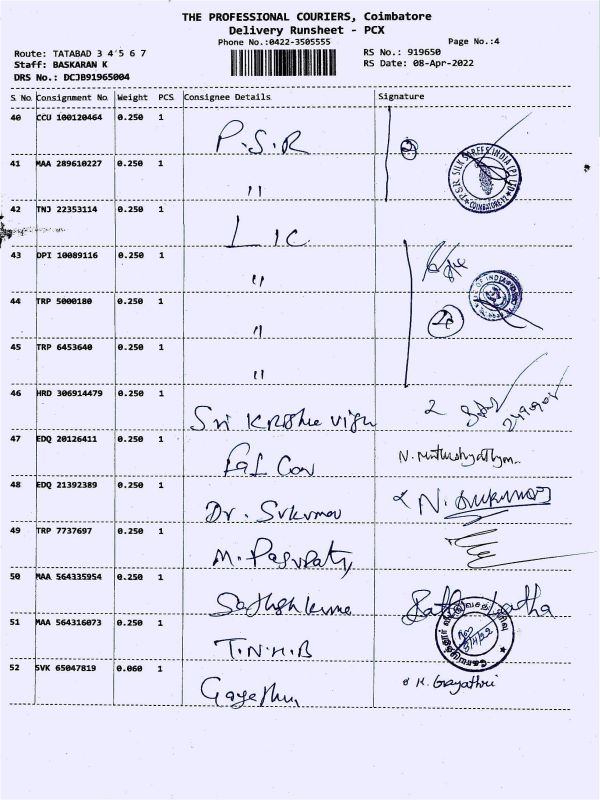 THE PROFESSIONAL COURIERS, Coimbatore
Delivery Runsheet - PCX
Phone No.:0422-3505555
Page No.:4
Route: TATABAD 3 4 5 6 7
RS No.: 919650
Staff: BASKARAN K
RS Date: 08-Apr-2022
DRS No.: DCJB91965004
S No Consignment No. Weight PCS Consignee Details Signature
40 CCU 100120464 0.250 1 P.S.R
P.S.R. SILK SAREES INDIA (P) LTD COIMBATORE-12
41 MAA 289610227 0.250 1 "
42 TNJ 22353114 0.250 1 LIC
43 DPI 10089116 0.250 1 "
OF INDIA
44 TRP 5000180 0.250 1 "
45 TRP 6453640 0.250 1 "
46 HRD 306914479 0.250 1 Sri Krishna 2
47 EDQ 20126411 0.250 1 Fal Con
48 EDQ 21392389 0.250 1 Dr. Srikumar N. Srikumar
49 TRP 7737697 0.250 1 M. Pasupathy
50 MAA 564335954 0.250 1 Sathishkumar
51 MAA 564316073 0.250 1 T.N.H.B
52 SVK 65047819 0.060 1 Gayathri K. Gayathri